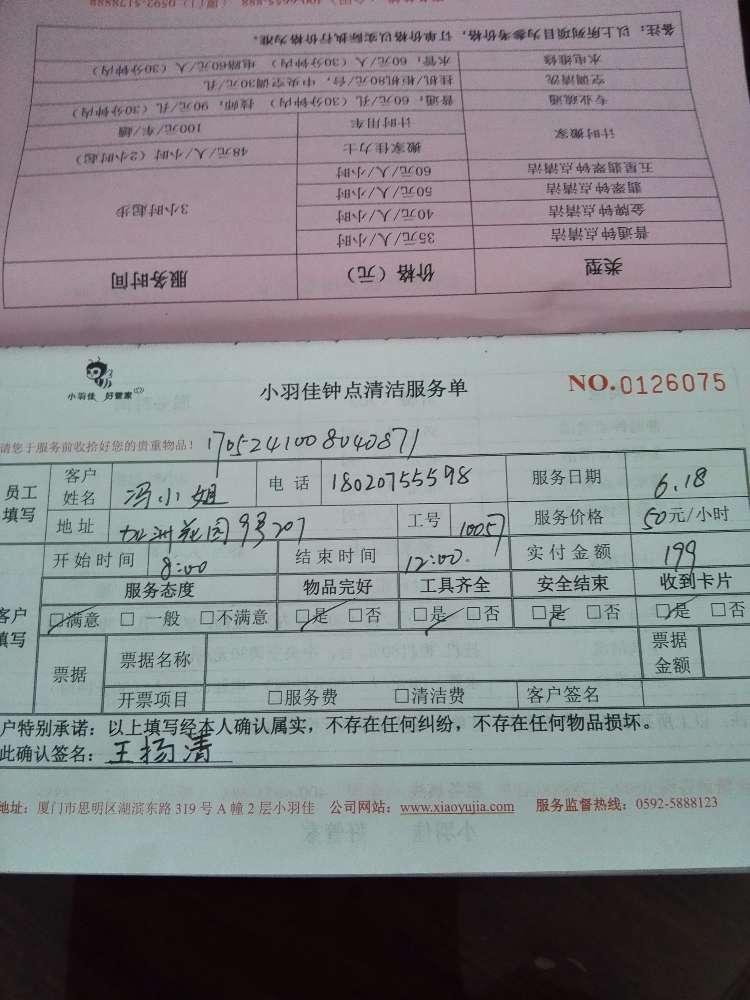 备注：以上所列项目为参考价格，订单价格以实际执行价格为准。
水电维修 水管，60元/人（30分钟内） 电路60元/人（30分钟内）
空调清洗 挂机/柜机80元/台，中央空调30元/孔
专业疏通 普通，60元/孔（30分钟内） 技师，90元/孔（30分钟内）
计时搬家 计时用车 100元/车/趟
搬家佳力士 48元/人/小时（2小时起）
五星翡翠钟点清洁 60元/人/小时
翡翠钟点清洁 50元/人/小时 3小时起步
金牌钟点清洁 40元/人/小时
普通钟点清洁 35元/人/小时
类型 价格（元） 服务时间
小羽佳 好管家
小羽佳钟点清洁服务单
NO.0126075
请您于服务前收拾好您的贵重物品！ 1705241008040871
员工填写 客户姓名 冯小姐 电话 18020755598 服务日期 6.18
地址 加洲花园9号207 工号 10057 服务价格 50元/小时
开始时间 8:00 结束时间 12:00. 实付金额 199
客户填写 服务态度 物品完好 工具齐全 安全结束 收到卡片
□满意 □一般 □不满意 □是 □否 □是 □否 □是 □否 □是 □否
票据 票据名称 票据金额
开票项目 □服务费 □清洁费 客户签名
户特别承诺：以上填写经本人确认属实，不存在任何纠纷，不存在任何物品损坏。
此确认签名：王扬清
地址：厦门市思明区湖滨东路319号A幢2层小羽佳 公司网站：www.xiaoyujia.com 服务监督热线：0592-5888123